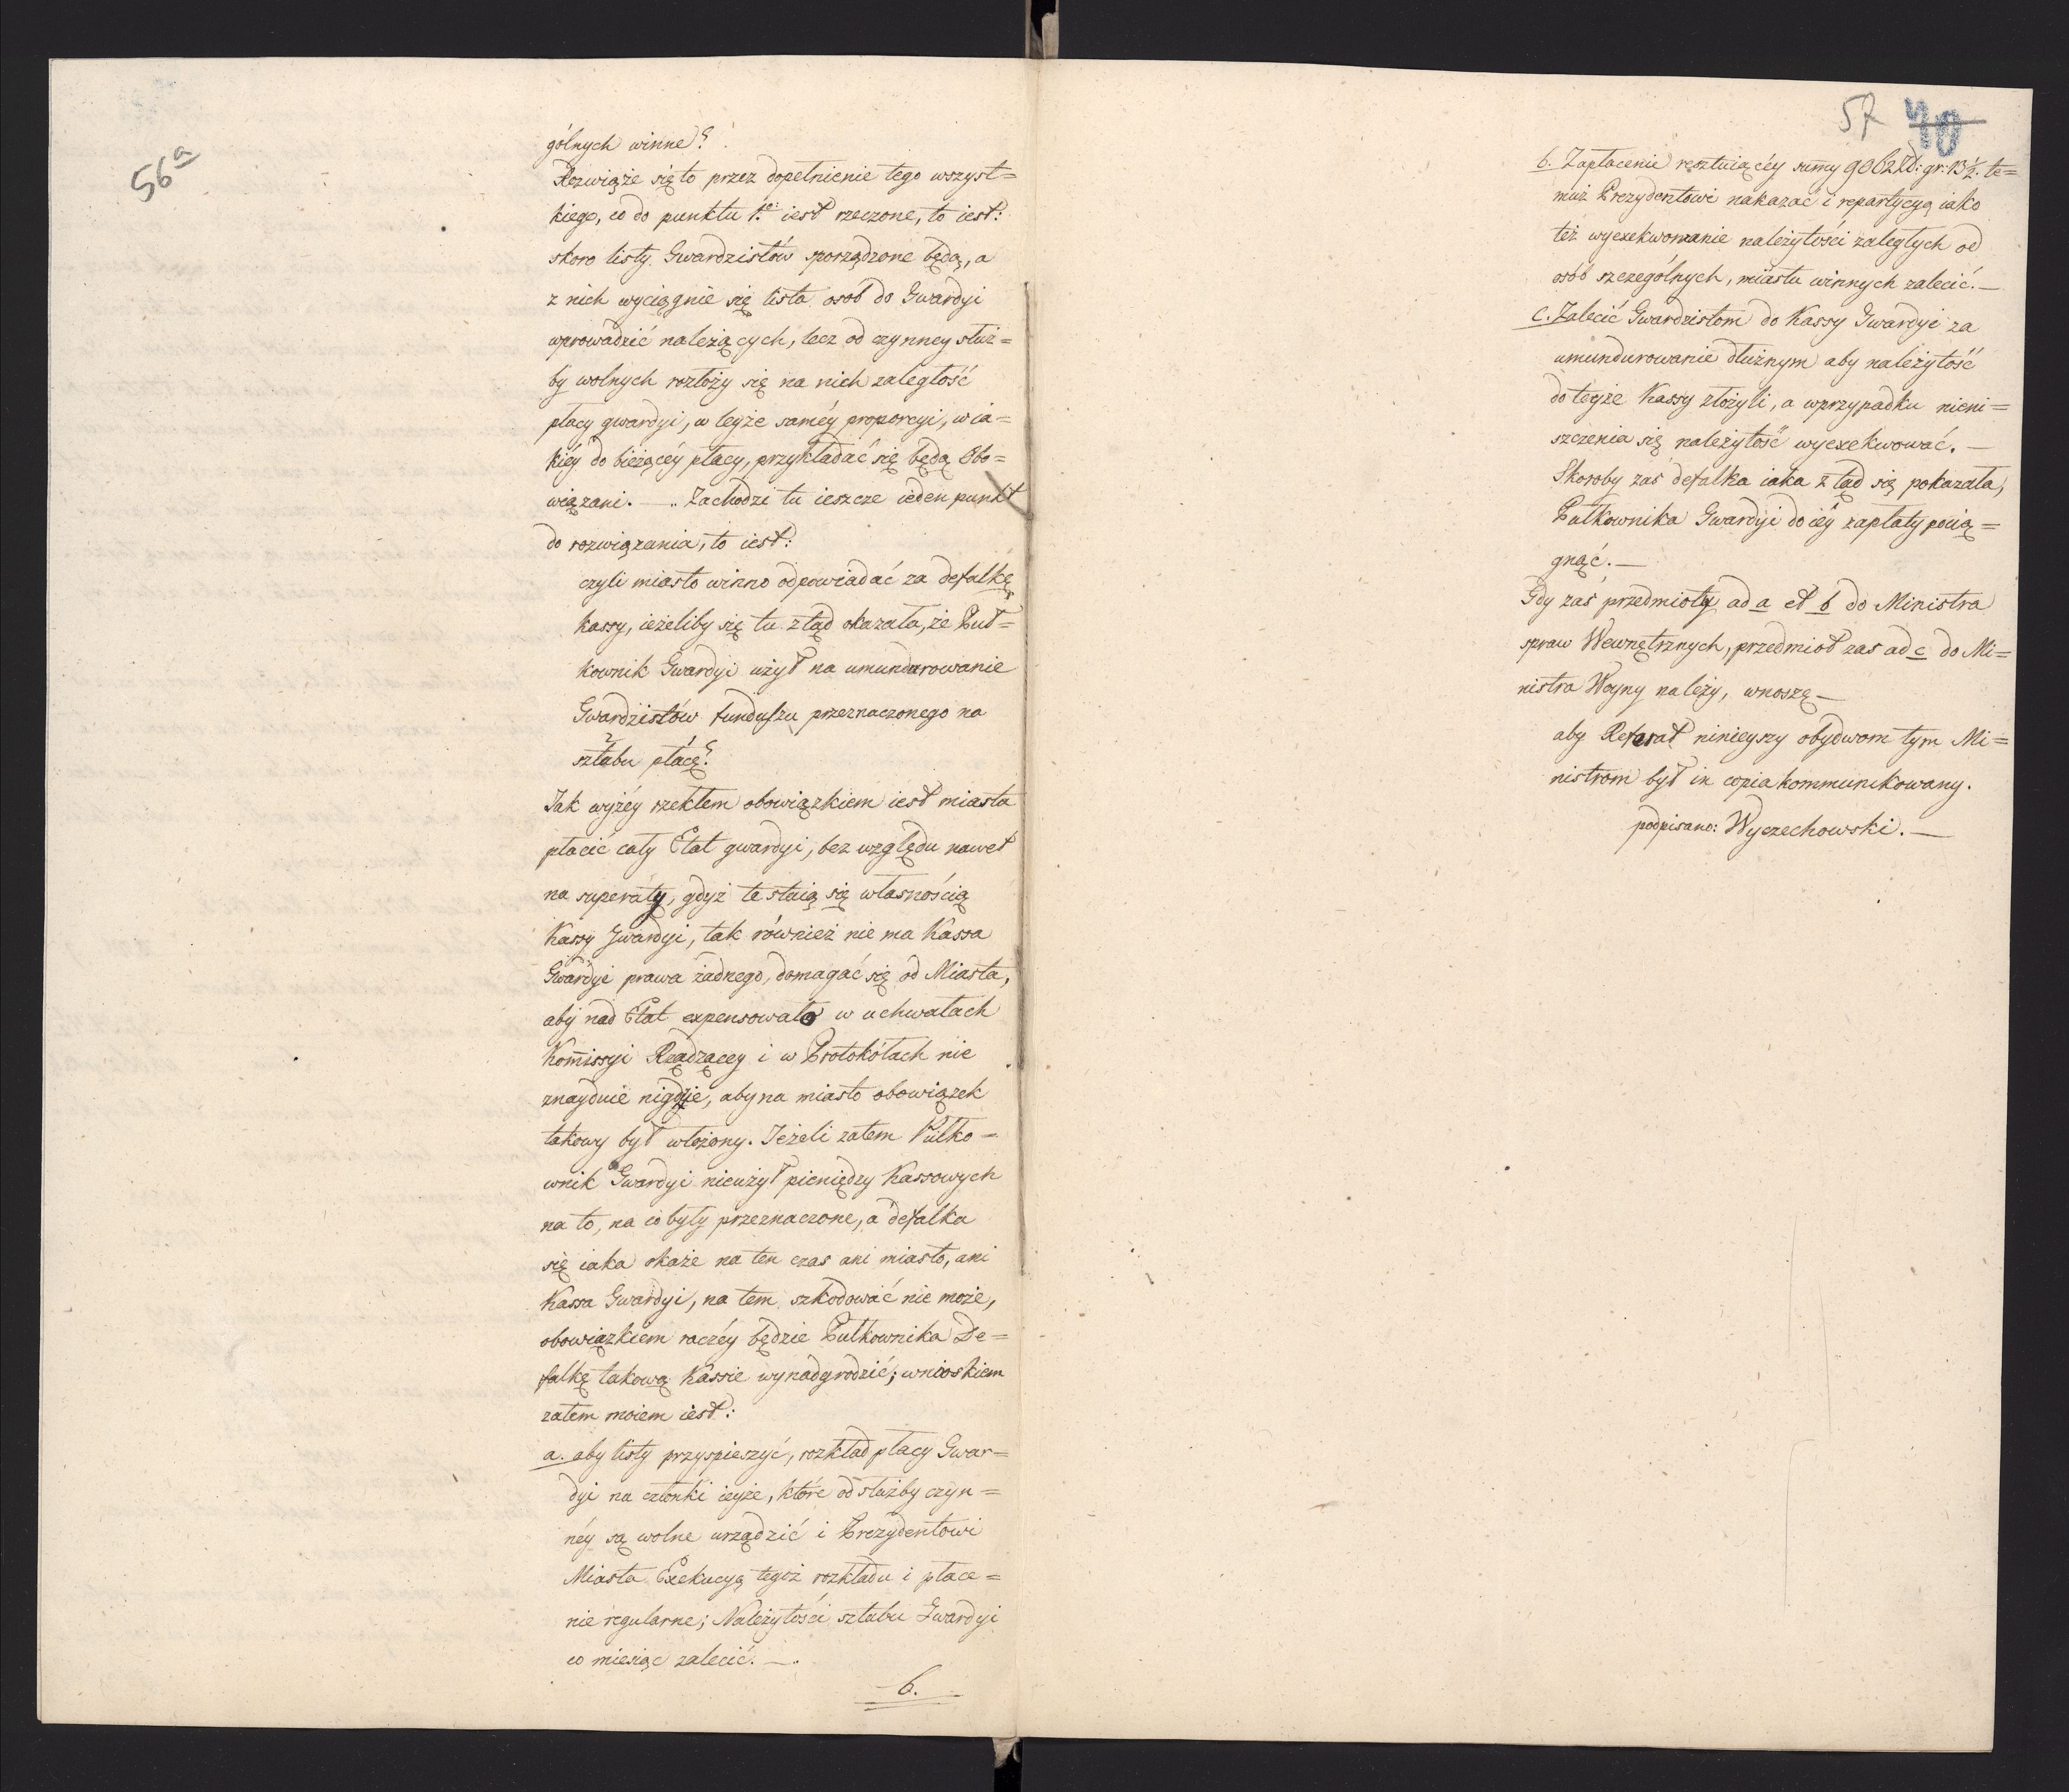 56a
gólnych winne?
Rozwiąże się to przez dopełnienie tego wszyst=
kiego, co do punktu 1go: iest rzeczone, to iest:
skoro listy Gwardzistów sporządzone będą, a
z nich wyciągnie się lista osób do Gwardyi
wprowadzić należących, lecz od czynney służ=
by wolnych rozłoży się na nich zaległość
płacy gwardyi, w teyże saméy proporcyi, w ia=
kiéy do bieżącéy płacy, przykładać się będą Obo=
wiązani. — „ Zachodzi tu ieszcze ieden punkt
do rozwiązania, to iest:
czyli miasto winno odpowiadać za defalkę
kassy, ieżeliby się tu ztąd okazała, że Puł=
kownik Gwardyi użył na umundurowanie
Gwardzistów funduszu przeznaczonego na
sztabu płacę?
Jak wyżéy rzekłem obowiązkiem iest miasta
płacić cały Etat gwardyi, bez względu nawet
na superaty, gdyż te staią się własnością
Kassy Gwardyi, tak również nie ma Kassa
Gwardyi prawa żadnego, domagać się od Miasta,
aby nad Etat expensowało w uchwałach
Kom̄issyi Rządzącey i w Protokółach nie
znayduie nigdzie, aby na miasto obowiązek
takowy był włożony. Jeżeli zatem Pułko=
wnik Gwardyi nieużył pieniędzy Kassowych
na to, na co były przeznaczone, a defalka
się iaka okaże na ten czas ani miasto, ani
Kassa Gwardyi, na tem szkodować nie może,
obowiązkiem raczéy będzie Pułkownika De=
falkę takową Kassie wynadgrodzić; wnioskiem
zatem moiem iest:
a. aby listy przyspieszyć, rozkład płacy Gwar=
dyi na członki ieyże, które od służby czyn=
néy są wolne urządzić i Prezydentowi
Miasta Exekucyą tegoż rozkładu i płace=
nie regularne; Należytości sztabu Gwardyi
co miesiąc zalecić. —.
b.
57 40
b. Zapłacenie resztuiącéy sum̄y 9062 Zł: gr: 13½. te=
muż Prezydentowi nakazać i repartycyą iako
też wyexekwowanie należytości zaległych od
osób szczególnych, miastu winnych zalecić. —
c. Zalecić Gwardzistom do Kassy Gwardyi za
umundurowanie dłużnym aby należytość
do teyże Kassy złożyli, a wprzypadku nieni=
szczenia się należytość wyexekwować. —
Skoroby zaś defalka iaka ztąd się pokazała,
Pułkownika Gwardyi do iéy zapłaty pocią=
gnąć. —
Gdy zaś przedmioty ad a et b do Ministra
spraw Wewnętrznych, przedmiot zas ad c do Mi=
nistra Woyny należy, wnoszę —
aby Referat ninieyszy obydwom tym Mi=
nistrom był in copia kommunikowany.
podpisano: Wyczechowski. —